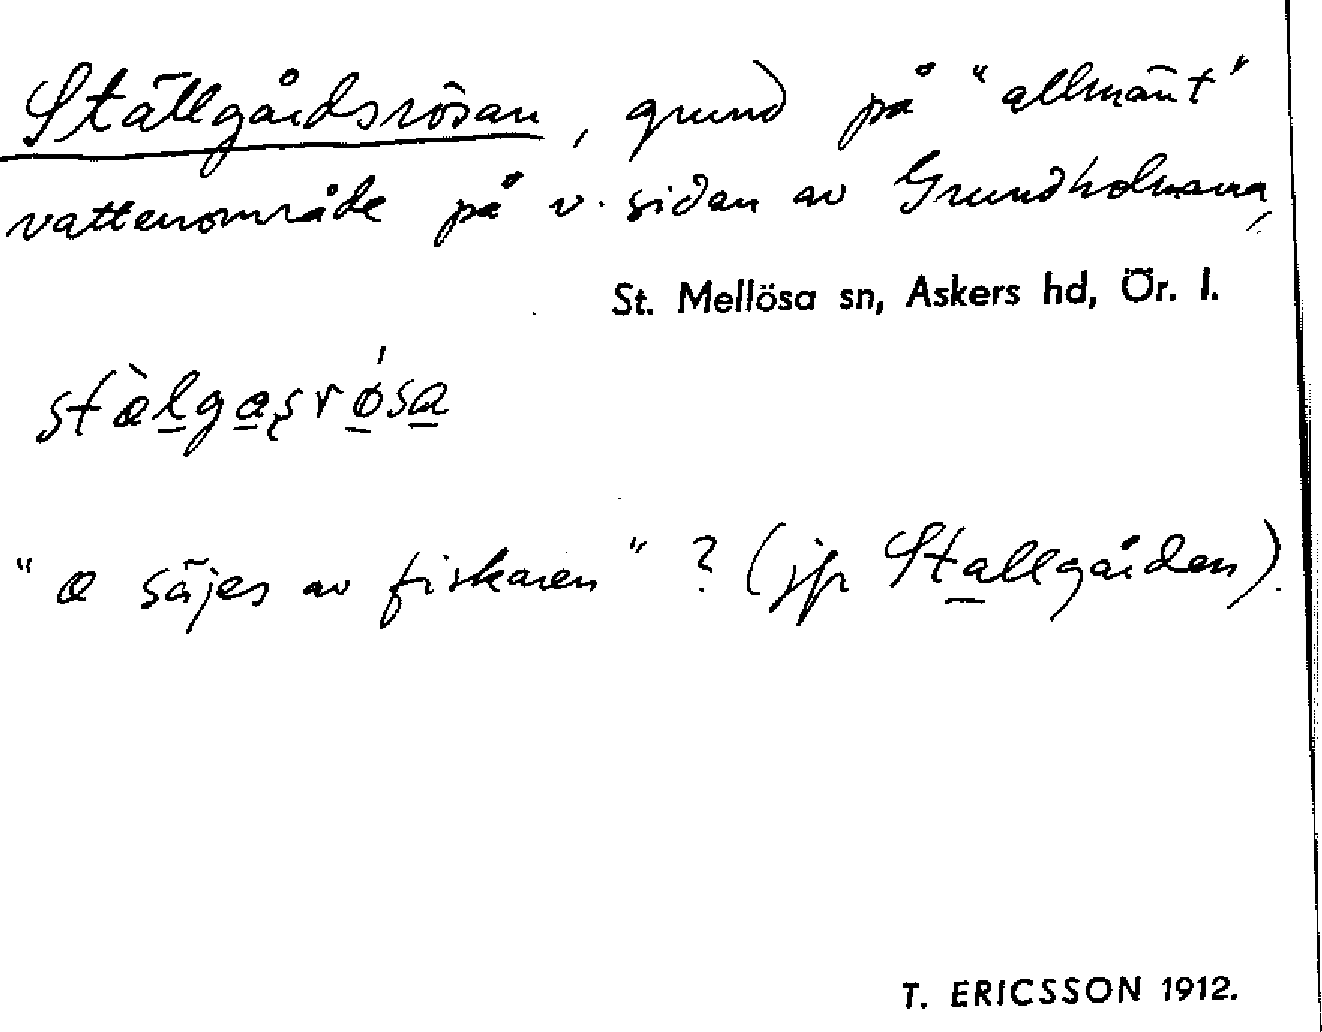 Ställgårdsrösan, grund på "allmänt"
vattenområde på v. sidan av Grundholmarna,
St. Mellösa sn, Askers hd, Ör. l.
stæ̀lgaʂrǿsa
"æ säjes av fiskaren" ? (jfr Stallgården).
T. ERICSSON 1912.